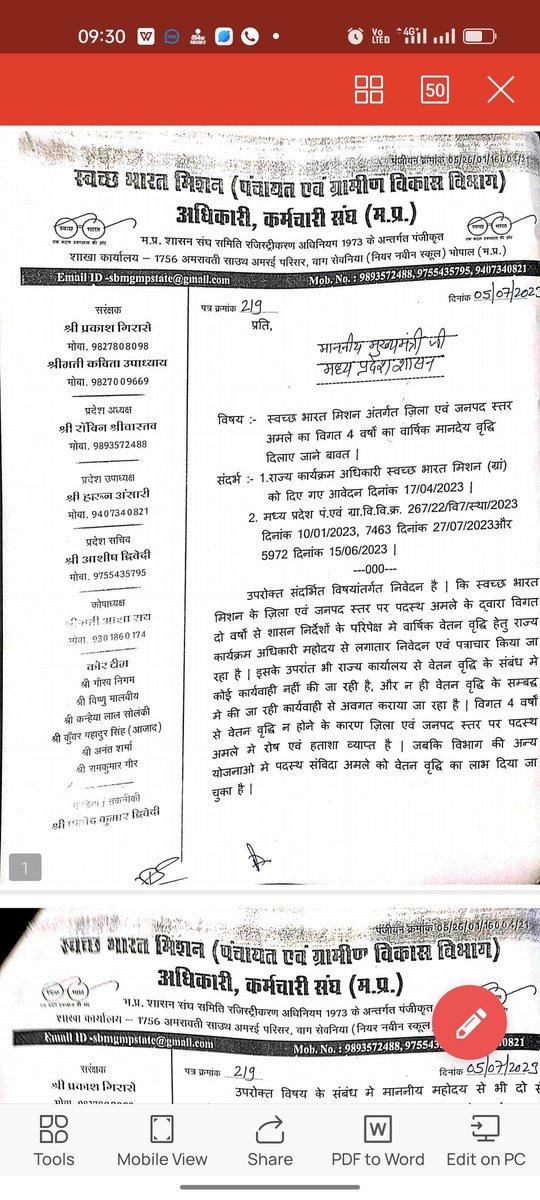 09:30
Vo LTED 4G+
50
पंजीयन क्रमांक 05/26/01/16004/21
स्वच्छ भारत मिशन (पंचायत एवं ग्रामीण विकास विभाग)
अधिकारी, कर्मचारी संघ (म.प्र.)
स्वच्छ भारत
एक कदम स्वच्छता की ओर
स्वच्छ भारत
एक कदम स्वच्छता की ओर
म.प्र. शासन संघ समिति रजिस्ट्रीकरण अधिनियम 1973 के अन्तर्गत पंजीकृत
शाखा कार्यालय – 1756 अमरावती साउथ अमरई परिसर, वाग सेवनिया (नियर नवीन स्कूल) भोपाल (म.प्र.)
Email ID -sbmgmpstate@gmail.com Mob. No. : 9893572488, 9755435795, 9407340821
पत्र क्रमांक 219 दिनांक 05/07/2023
सरंक्षक
श्री प्रकाश गिरासे
मोवा. 9827808098
श्रीमती कविता उपाध्याय
मोवा. 9827009669
प्रदेश अध्यक्ष
श्री रॉबिन श्रीवास्तव
मोवा. 9893572488
प्रदेश उपाध्यक्ष
श्री हारून अंसारी
मोवा. 9407340821
प्रदेश सचिव
श्री आशीष द्विवेदी
मोवा. 9755435795
कोपाध्यक्ष
श्रीमती आशा राय
मोवा. 9301860174
कोर टीम
श्री गौरव निगम
श्री विष्णु मालवीय
श्री कन्हैया लाल सोलंकी
श्री कुँवर बहादुर सिंह (आजाद)
श्री अनंत शर्मा
श्री रामकुमार गौर
तकनीकी
श्री प्रमोद कुमार द्विवेदी
प्रति,
माननीय मुख्यमंत्री जी
मध्य प्रदेश शासन
विषय :- स्वच्छ भारत मिशन अंतर्गत ज़िला एवं जनपद स्तर
अमले का विगत 4 वर्षो का वार्षिक मानदेय वृद्धि
दिलाए जाने बावत |
संदर्भ :- 1.राज्य कार्यक्रम अधिकारी स्वच्छ भारत मिशन (ग्रां)
को दिए गए आवेदन दिनांक 17/04/2023 |
2. मध्य प्रदेश पं.एवं ग्रा.वि.वि.क्र. 267/22/वि7/स्था/2023
दिनांक 10/01/2023, 7463 दिनांक 27/07/2023और
5972 दिनांक 15/06/2023 |
---000---
उपरोक्त संदर्भित विषयांतर्गत निवेदन है | कि स्वच्छ भारत
मिशन के ज़िला एवं जनपद स्तर पर पदस्थ अमले के द्वारा विगत
दो वर्षो से शासन निर्देशों के परिपेक्ष मे वार्षिक वेतन वृद्धि हेतु राज्य
कार्यक्रम अधिकारी महोदय से लगातार निवेदन एवं पत्राचार किया जा
रहा है | इसके उपरांत भी राज्य कार्यालय से वेतन वृद्धि के संबंध मे
कोई कार्यवाही नहीं की जा रही है, और न ही वेतन वृद्धि के सम्बद्ध
मे की जा रही कार्यवाही से अवगत कराया जा रहा है | विगत 4 वर्षो
से वेतन वृद्धि न होने के कारण ज़िला एवं जनपद स्तर पर पदस्थ
अमले मे रोष एवं हताशा व्याप्त है | जबकि विभाग की अन्य
योजनाओ मे पदस्थ संविदा अमले को वेतन वृद्धि का लाभ दिया जा
चुका है |
1
पंजीयन क्रमांक 05/26/01/16004/21
स्वच्छ भारत मिशन (पंचायत एवं ग्रामीण विकास विभाग)
अधिकारी, कर्मचारी संघ (म.प्र.)
म.प्र. शासन संघ समिति रजिस्ट्रीकरण अधिनियम 1973 के अन्तर्गत पंजीकृत
शाखा कार्यालय – 1756 अमरावती साउथ अमरई परिसर, वाग सेवनिया (नियर नवीन स्कूल)
Email ID -sbmgmpstate@gmail.com Mob. No. : 9893572488, 97554 0821
पत्र क्रमांक 219 दिनांक 05/07/2023
सरंक्षक
श्री प्रकाश गिरासे
उपरोक्त विषय के संबंध मे माननीय महोदय से भी दो
Tools
Mobile View
Share
W
PDF to Word
Edit on PC